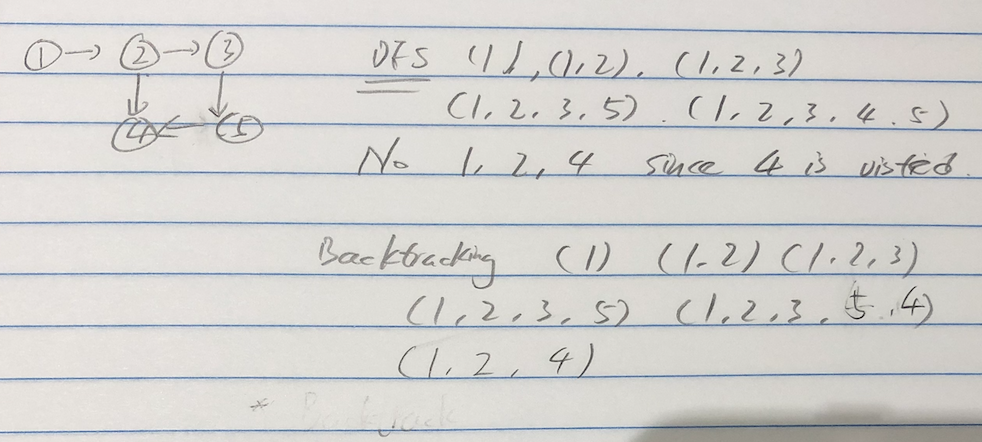 ① → ② → ③
④ ← ⑤
DFS (1), (1,2). (1,2,3)
(1,2,3,5). (1,2,3,4.5)
No 1,2,4 since 4 is visted.
Backtracking (1) (1.2) (1.2,3)
(1,2,3,5) (1,2,3,5.4)
(1,2,4)
* Backtrack